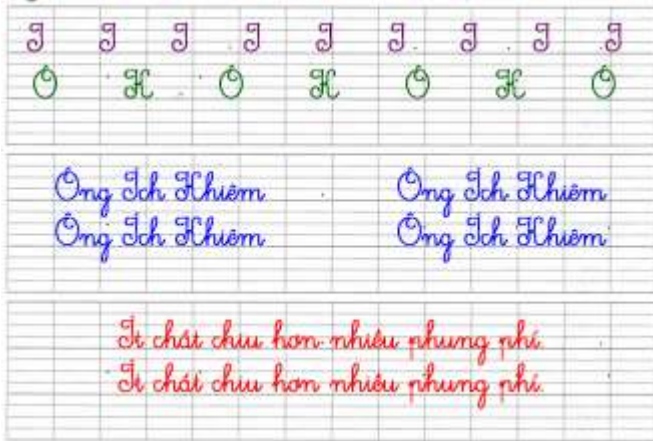 I I I I I I I I I
Ô K Ô K Ô K Ô
Ông Ích Khiêm Ông Ích Khiêm
Ông Ích Khiêm Ông Ích Khiêm
Ít chắt chiu hơn nhiều phung phí.
Ít chắt chiu hơn nhiều phung phí.